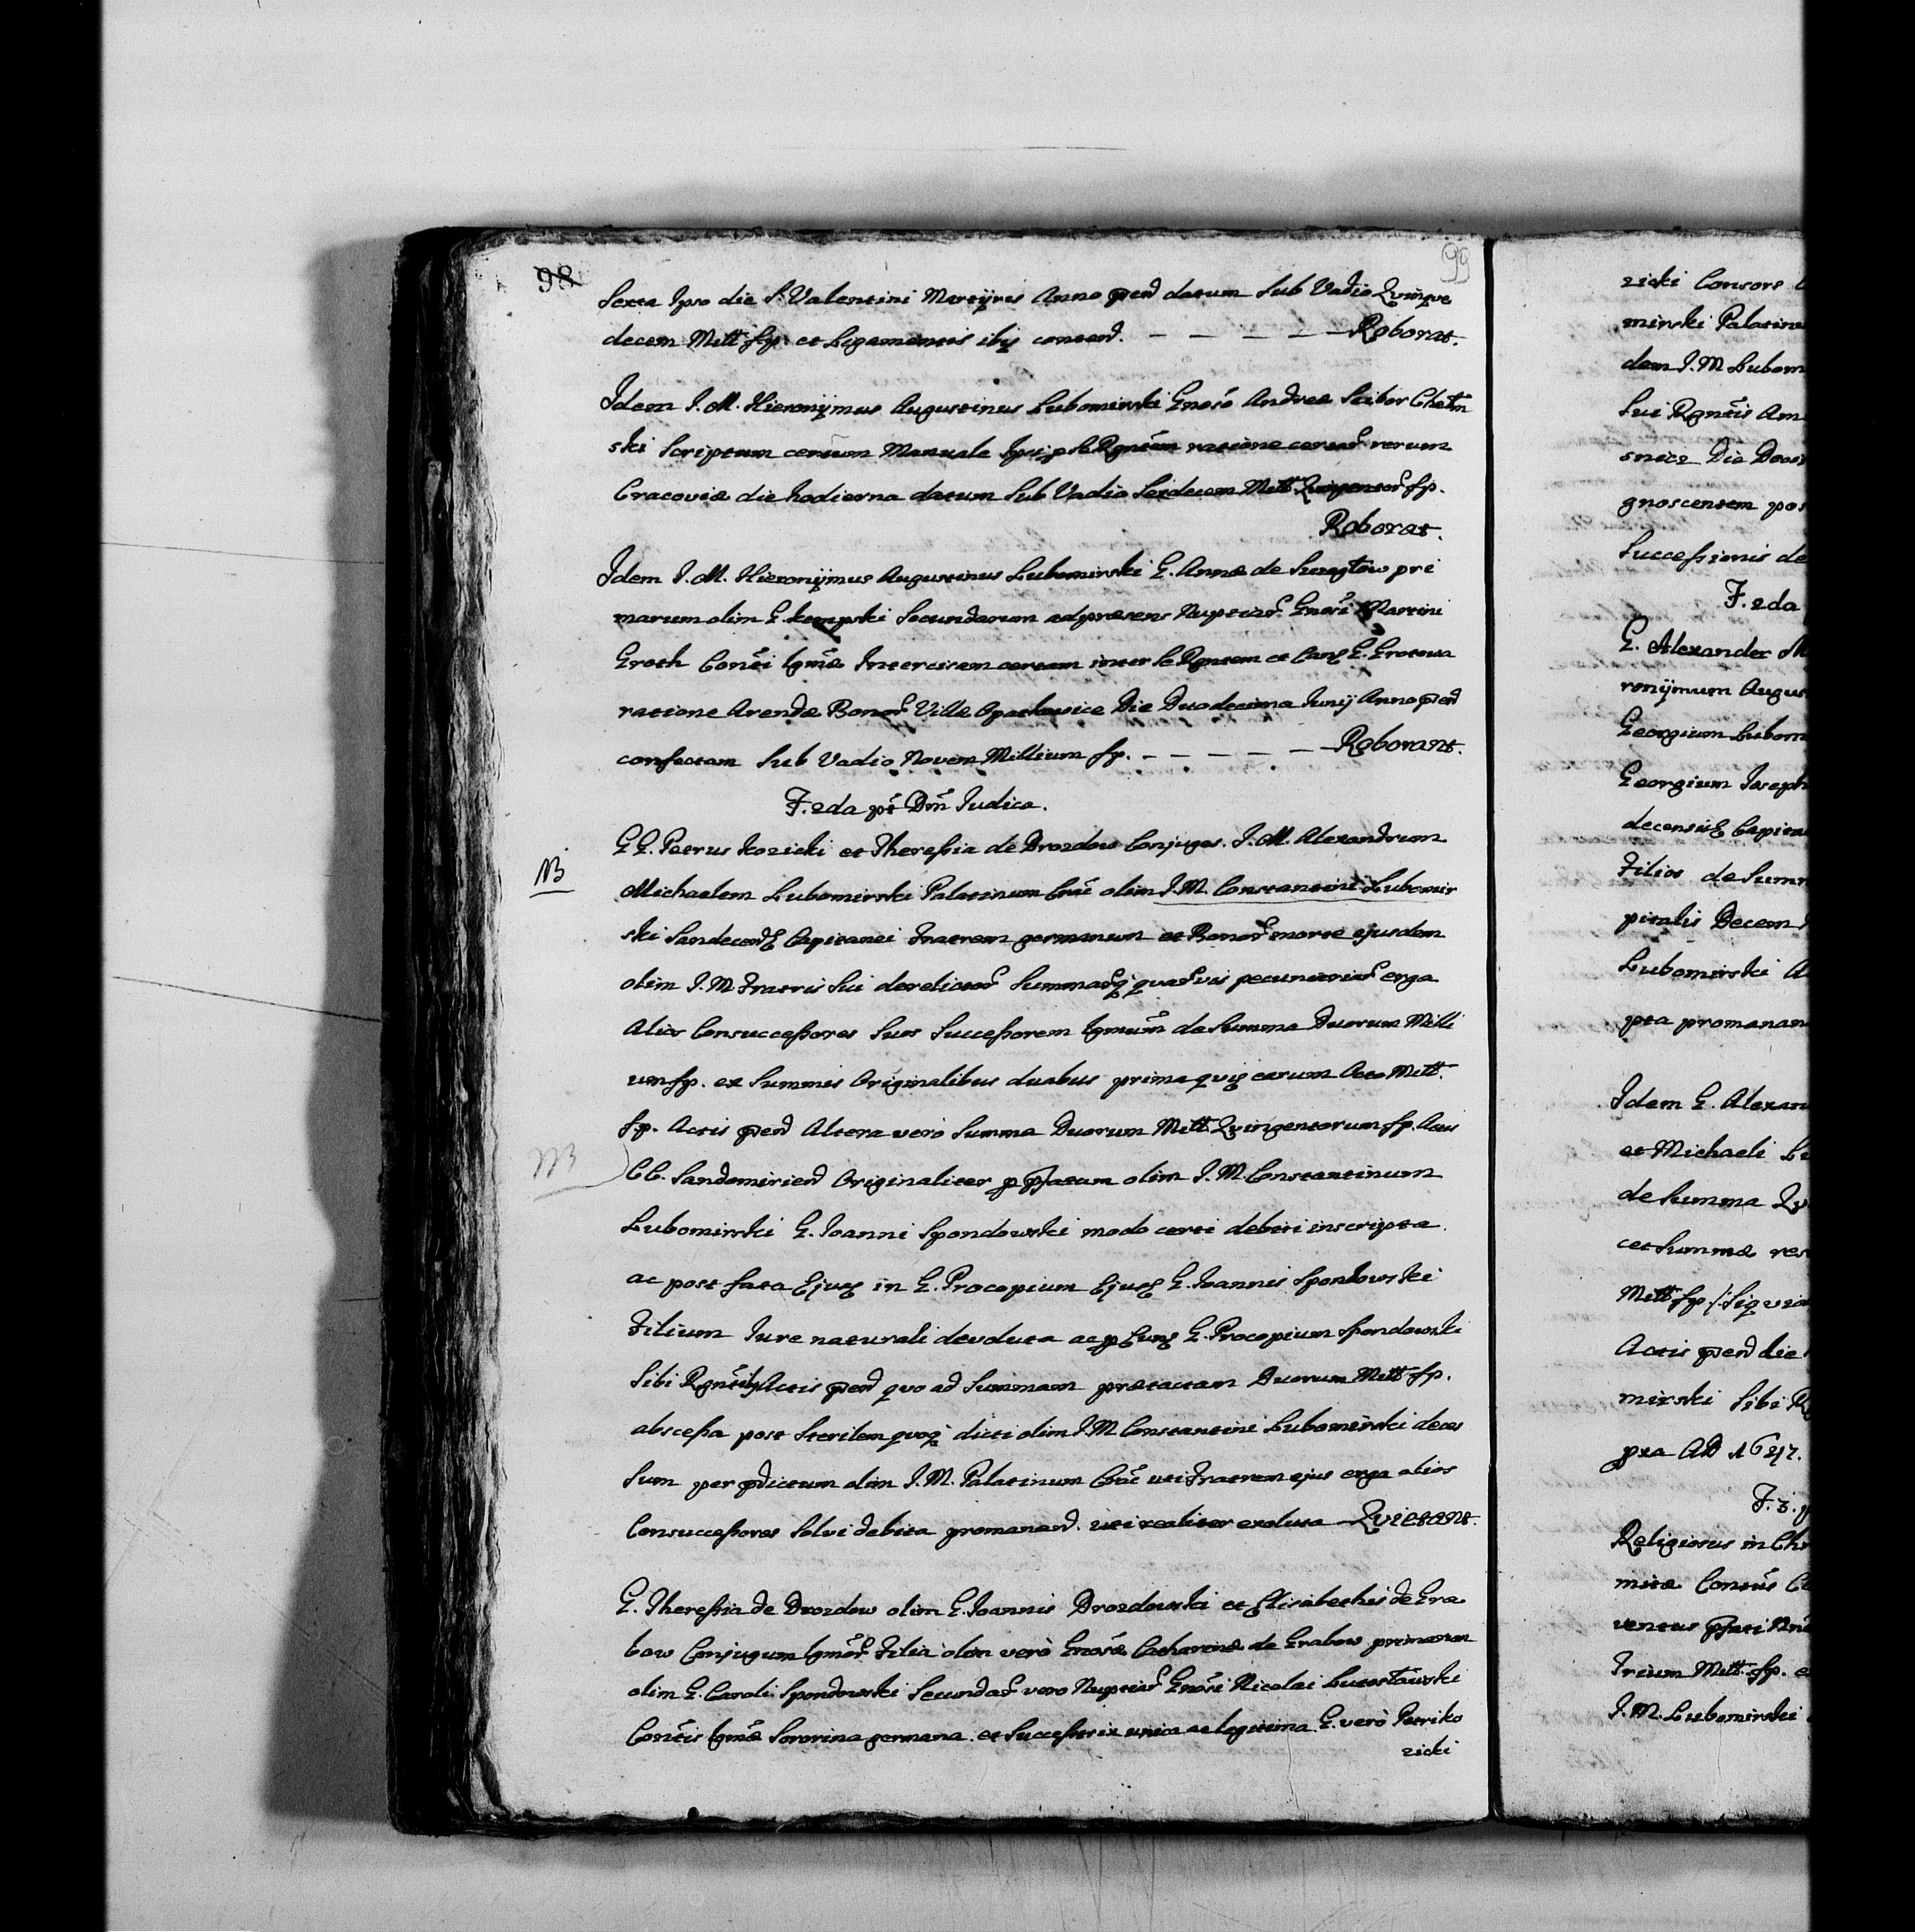 98
99
Sexta Ipso die S. Valentini Martyris Anno pnd datum Sub Vadio Qvinqve
decem Mill fp. et Ligamentis ibq contend. – – – – – Roborat.
Idem I. M. Hieronÿmus Augustinus Lubomirski Gnoso Andreæ Scibor Chełm
ski Scriptum certum Manuale Ipsi p se Rgntem ratione certar rerum
Cracoviæ die hodierna datum Sub Vadio Sexdecem Mill Qvingentor fp.
Roborat.
Idem I. M. Hieronÿmus Augustinus Lubomirski G. Annæ de pri
marum olim G. Kempski Secundarum ad præsens Nuptiar Gnosi Martini
Groth Conti lgmæ Intercisam certam inter Se Rgntem et Eanq G. Grotowa
ratione Arendæ Bonor Villæ Opatkowice Die Duodecima Junij Anno pnd
confectam Sub Vadio Novem Millium fp. – – – – – Roborant.
F. 2da pt Dm Judica.
NB
G G. Petrus Kozicki et Theressia de Drozdow Conjuges. I. M. Alexandrum
Michaelem Lubomirski Palatinum Crac olim I. M. Constantini Lubomir
ski Sandecen Capitanei Fratrem germanum et Bonor morte ejusdem
olim I. M. Fratris Sui derelictor Summarq quarvis pecuniariar erga
Alios Consuccessores Suos Successorem lgmum de Summa Duorum Milli
um fp. ex Summis Originalibus duabus prima qviq earum Octo Mill.
fp. Actis pnd Altera vero Summa Duorum Mill Qvingentorum fp. Actis
NB
CC. Sandomirien Originaliter p pfatum olim I. M. Constantinum
Lubomirski G. Joanni Spondowski modo certi debiti inscripta
ac post fata Ejusq in G. Procopium Ejusq G. Joannis Spondowski
Filium Jure naturali devoluta ac p Eunq G. Procopium Spondowski
Sibi Rgntibq Actis pnd quo ad Summam prætactam Duorum Mill fp.
abscessa post Sterilem quoq dicti olim I M Constantini Lubomirski deces
Sum per pdictum olim I. M. Palatinum Crac uti Fratrem ejus erga alios
Consuccessores Solvi debita promanand. uti realiter exoluta Qvietant.
G. Theressia de Drozdow olim G. Joannis Drozdowski et Elisabethis de Gra
bow Conjugum lgmor Filia olim vero Gnosæ Catharinæ de Grabow primarum
olim G. Caroli Spondowski Secundar vero Nuptiar Gnosi Nicolai Lutosławski
Contis lgmæ Sororina germana et Successtrix unica ac legitima G. vero Petri Ko
zicki
zicki Consors
mirski Palatin
dem I. M Lubom
Sui Rgntis Am
snice Die Deci
gnoscentem pos
Successionis de
F. 2da
G. Alexander M
ronÿmum Augus
Georgium Lubom
Georgium Joseph
decensisq Capita
Filios de Summ
pitalis Decem
Lubomirski A
pta promanan
Idem G. Alexan
et Michaeli L
de Summa Qv
cet Summæ res
Mill fp
Actis pnd die
mirski Sibi R
pxa AD 1647.
F. 3. p
Religiosus in Chr
mitæ Contus
ventus pfati
Trium Mill fp.
I. M. Lubomirski